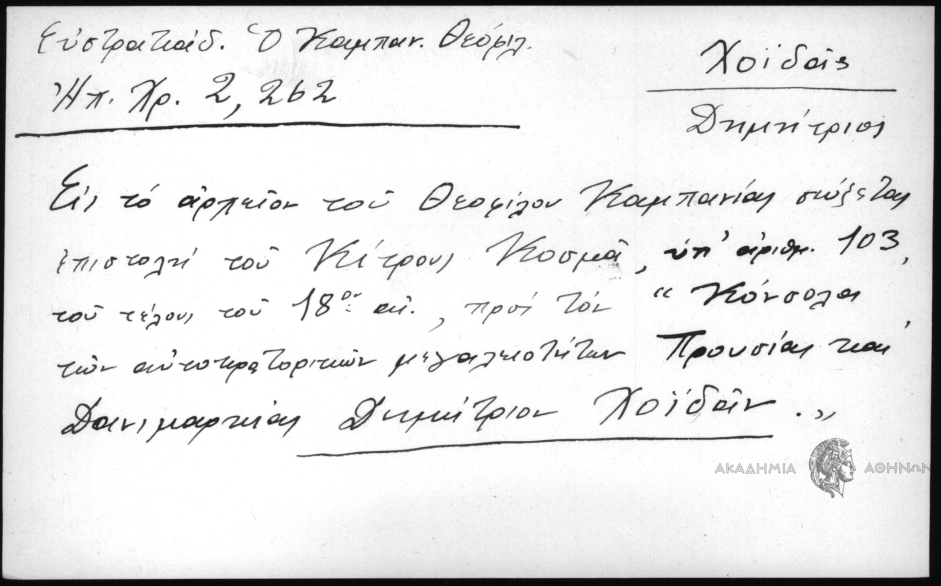 Εὐστρατιάδ. Ὁ Καμπαν. Θεόφιλ.
Ἠπ. Χρ. 2, 262
Χοϊδᾶς
Δημήτριος
Εἰς τό ἀρχεῖον τοῦ Θεοφίλου Καμπανίας σώζεται
ἐπιστολή τοῦ Κίτρους Κοσμᾶ, ὑπ' ἀριθμ. 103,
τοῦ τέλους τοῦ 18ου αἰ., πρός τόν “Κόνσολα
τῶν αὐτοκρατορικῶν μεγαλειοτήτων Προυσίας καί
Δανιμαρκίας Δημήτριον Χοϊδᾶν.„
ΑΚΑΔΗΜΙΑ ΑΘΗΝΩΝ